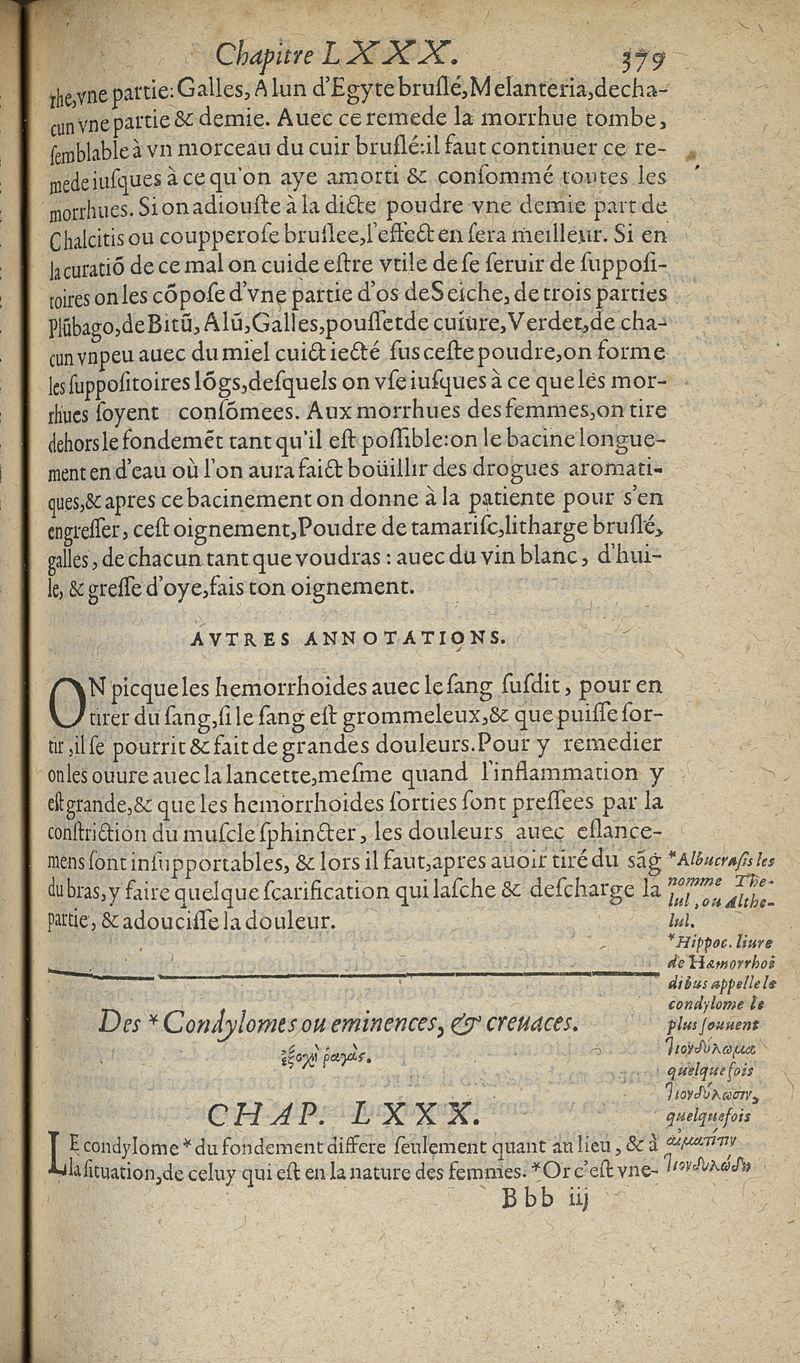 Chapitre LXXX. 379
rhe,vne partie:Galles, Alun d'Egyte bruslé,Melanteria,decha-
cun vne partie & demie. Auec ce remede la morrhue tombe,
semblable à vn morceau du cuir bruslé:il faut continuer ce re-
mede iusques à ce qu'on aye amorti & consommé toutes les
morrhues. Si on adiouste à la dicte poudre vne demie part de
Chalcitis ou coupperose bruslee,l'effect en sera meilleur. Si en
la curatiõ de ce mal on cuide estre vtile de se seruir de supposi-
toires on les cõpose d'vne partie d'os de Seiche, de trois parties
Plũbago,de Bitũ, Alũ,Galles,poussetde cuiure,Verdet,de cha-
cun vn peu auec du miel cuict iecté sus ceste poudre,on forme
les suppositoires lõgs,desquels on vse iusques à ce que les mor-
rhues soyent consõmees. Aux morrhues des femmes,on tire
dehors le fondemẽt tant qu'il est possible:on le bacine longue-
ment en d'eau où l'on aura faict boüillir des drogues aromati-
ques,& apres ce bacinement on donne à la patiente pour s'en
engresser, cest oignement,Poudre de tamarisc,litharge bruslé,
galles, de chacun tant que voudras : auec du vin blanc, d'hui-
le, & gresse d'oye,fais ton oignement.
AVTRES ANNOTATIONS.
ON picque les hemorrhoides auec le sang susdit, pour en
tirer du sang,si le sang est grommeleux,& que puisse sor-
tir,il se pourrit & fait de grandes douleurs.Pour y remedier
on les ouure auec la lancette,mesme quand l'inflammation y
est grande,& que les hemorrhoides sorties sont pressees par la
constriction du muscle sphincter, les douleurs auec eslance-
mens sont insupportables, & lors il faut,apres auoir tiré du sãg
du bras,y faire quelque scarification qui lasche & descharge la
partie, & adoucisse la douleur.
*Albucrasis les
nomme The-
lul, ou Althe-
lul.
*Hippoc. liure
de Hæmorrhoi
dibus appelle le
condylome le
plus souuent
κονδύλωμα
quelque fois
κονδύλωσιν,
quelquefois
αἱμάτιτιν
κονδυλώδη
Des * Condylomes ou eminences, & creuaces.
ἐξοχὴ ῥαγάς.
CHAP. LXXX.
LE condylome * du fondement differe seulement quant au lieu, & à
la situation,de celuy qui est en la nature des femmes. *Or c'est vne-
Bbb iij